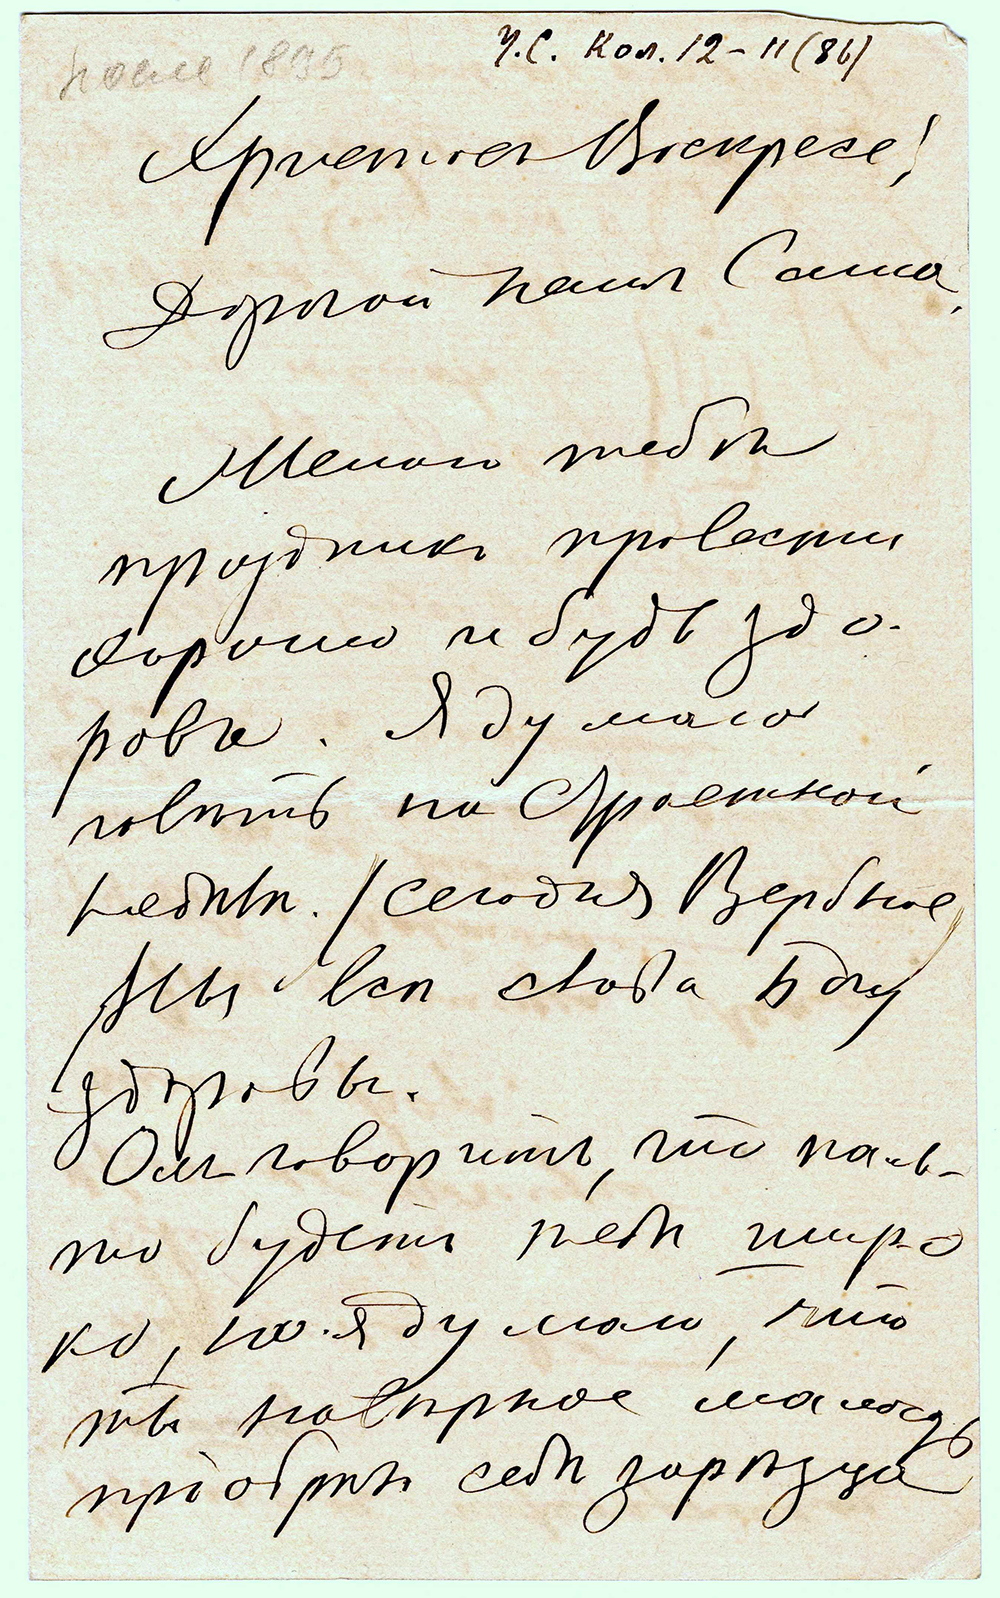 после 1895
Ч.С. Кол. 12-11(86)
Христосъ Воскресе!
Дорогой нашъ Саша,
Желаю тебѣ
праздникъ провести
хорошо и будь здо-
ровъ. Я думаю
говѣть на Страстной
недѣлѣ. (сегодня Вербное
Мы всѣ слова Богу
здоровы.
Оля говоритъ, что паль-
то будетъ тебѣ широ
ко, но я думаю, что
ты навѣрное малость
пріобрѣлъ себѣ